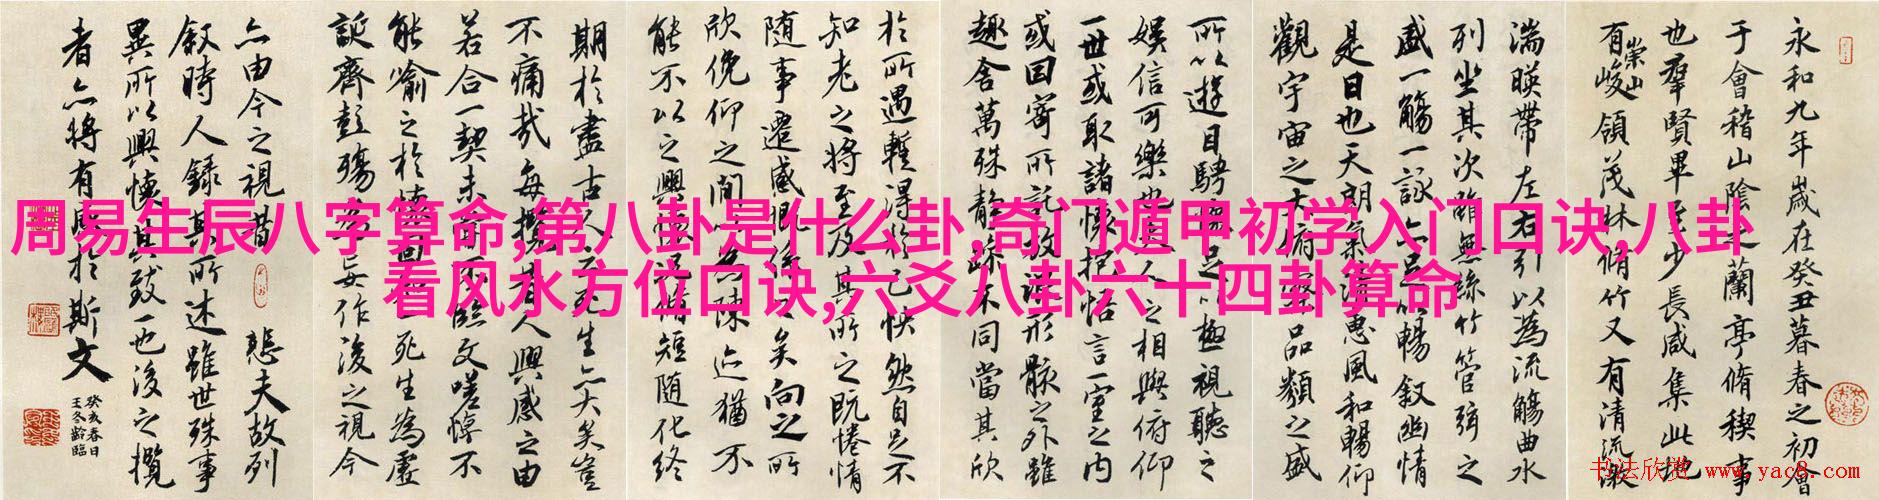 周易生辰八字算命,第八卦是什么卦,奇门遁甲初学入门口诀,八卦
看风水方位口诀,六爻八卦六十四卦算命
永和九年歲在癸丑暮春之初會
于會稽山陰之蘭亭脩稧事
也羣賢畢至少長咸集此地
有崇山峻領茂林脩竹又有清流激
湍暎帶左右引以為流觴曲水
列坐其次雖無絲竹管弦之
盛一觴一詠亦足以暢敘幽情
是日也天朗氣清惠風和暢仰
觀宇宙之大俯察品類之盛
所以遊目騁懷足以極視聽之
娛信可樂也夫人之相與俯仰
一世或取諸懷抱悟言一室之內
或因寄所託放浪形骸之外雖
趣舍萬殊靜躁不同當其欣
於所遇暫得於己怏然自足不
知老之將至及其所之既惓情
隨事遷感慨係之矣向之所
欣俛仰之間以為陳迹猶不
能不以之興懷況脩短隨化終
期於盡古人云死生亦大矣豈
不痛哉每攬昔人興感之由
若合一契未嘗不臨文嗟悼不
能喻之於懷固知一死生為虛
誕齊彭殤為妄作後之視今
亦由今之視昔悲夫故列
敘時人錄其所述雖世殊事
異所以興懷其致一也後之攬
者亦將有感於斯文
癸亥春日
王冬齡臨
书法欣赏 www.yac8.com